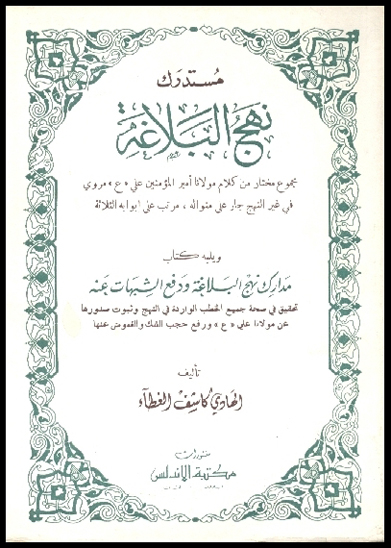 مستدرك
نهج البلاغة
مجموع مختار من كلام مولانا أمير المؤمنين علي «ع» مروي
في غير النهج جار على منواله ، مرتب على ابوابه الثلاثة
ويليه كتاب
مدارك نهج البلاغة ودفع الشبهات عنه
تحقيق في صحة جميع الخطب الواردة في النهج وثبوت صدورها
عن مولانا علي «ع» ورفع حجب الشك والغموض عنها
تأليف
الهادي كاشف الغطآء
منشورات
مكتبة الاندلس